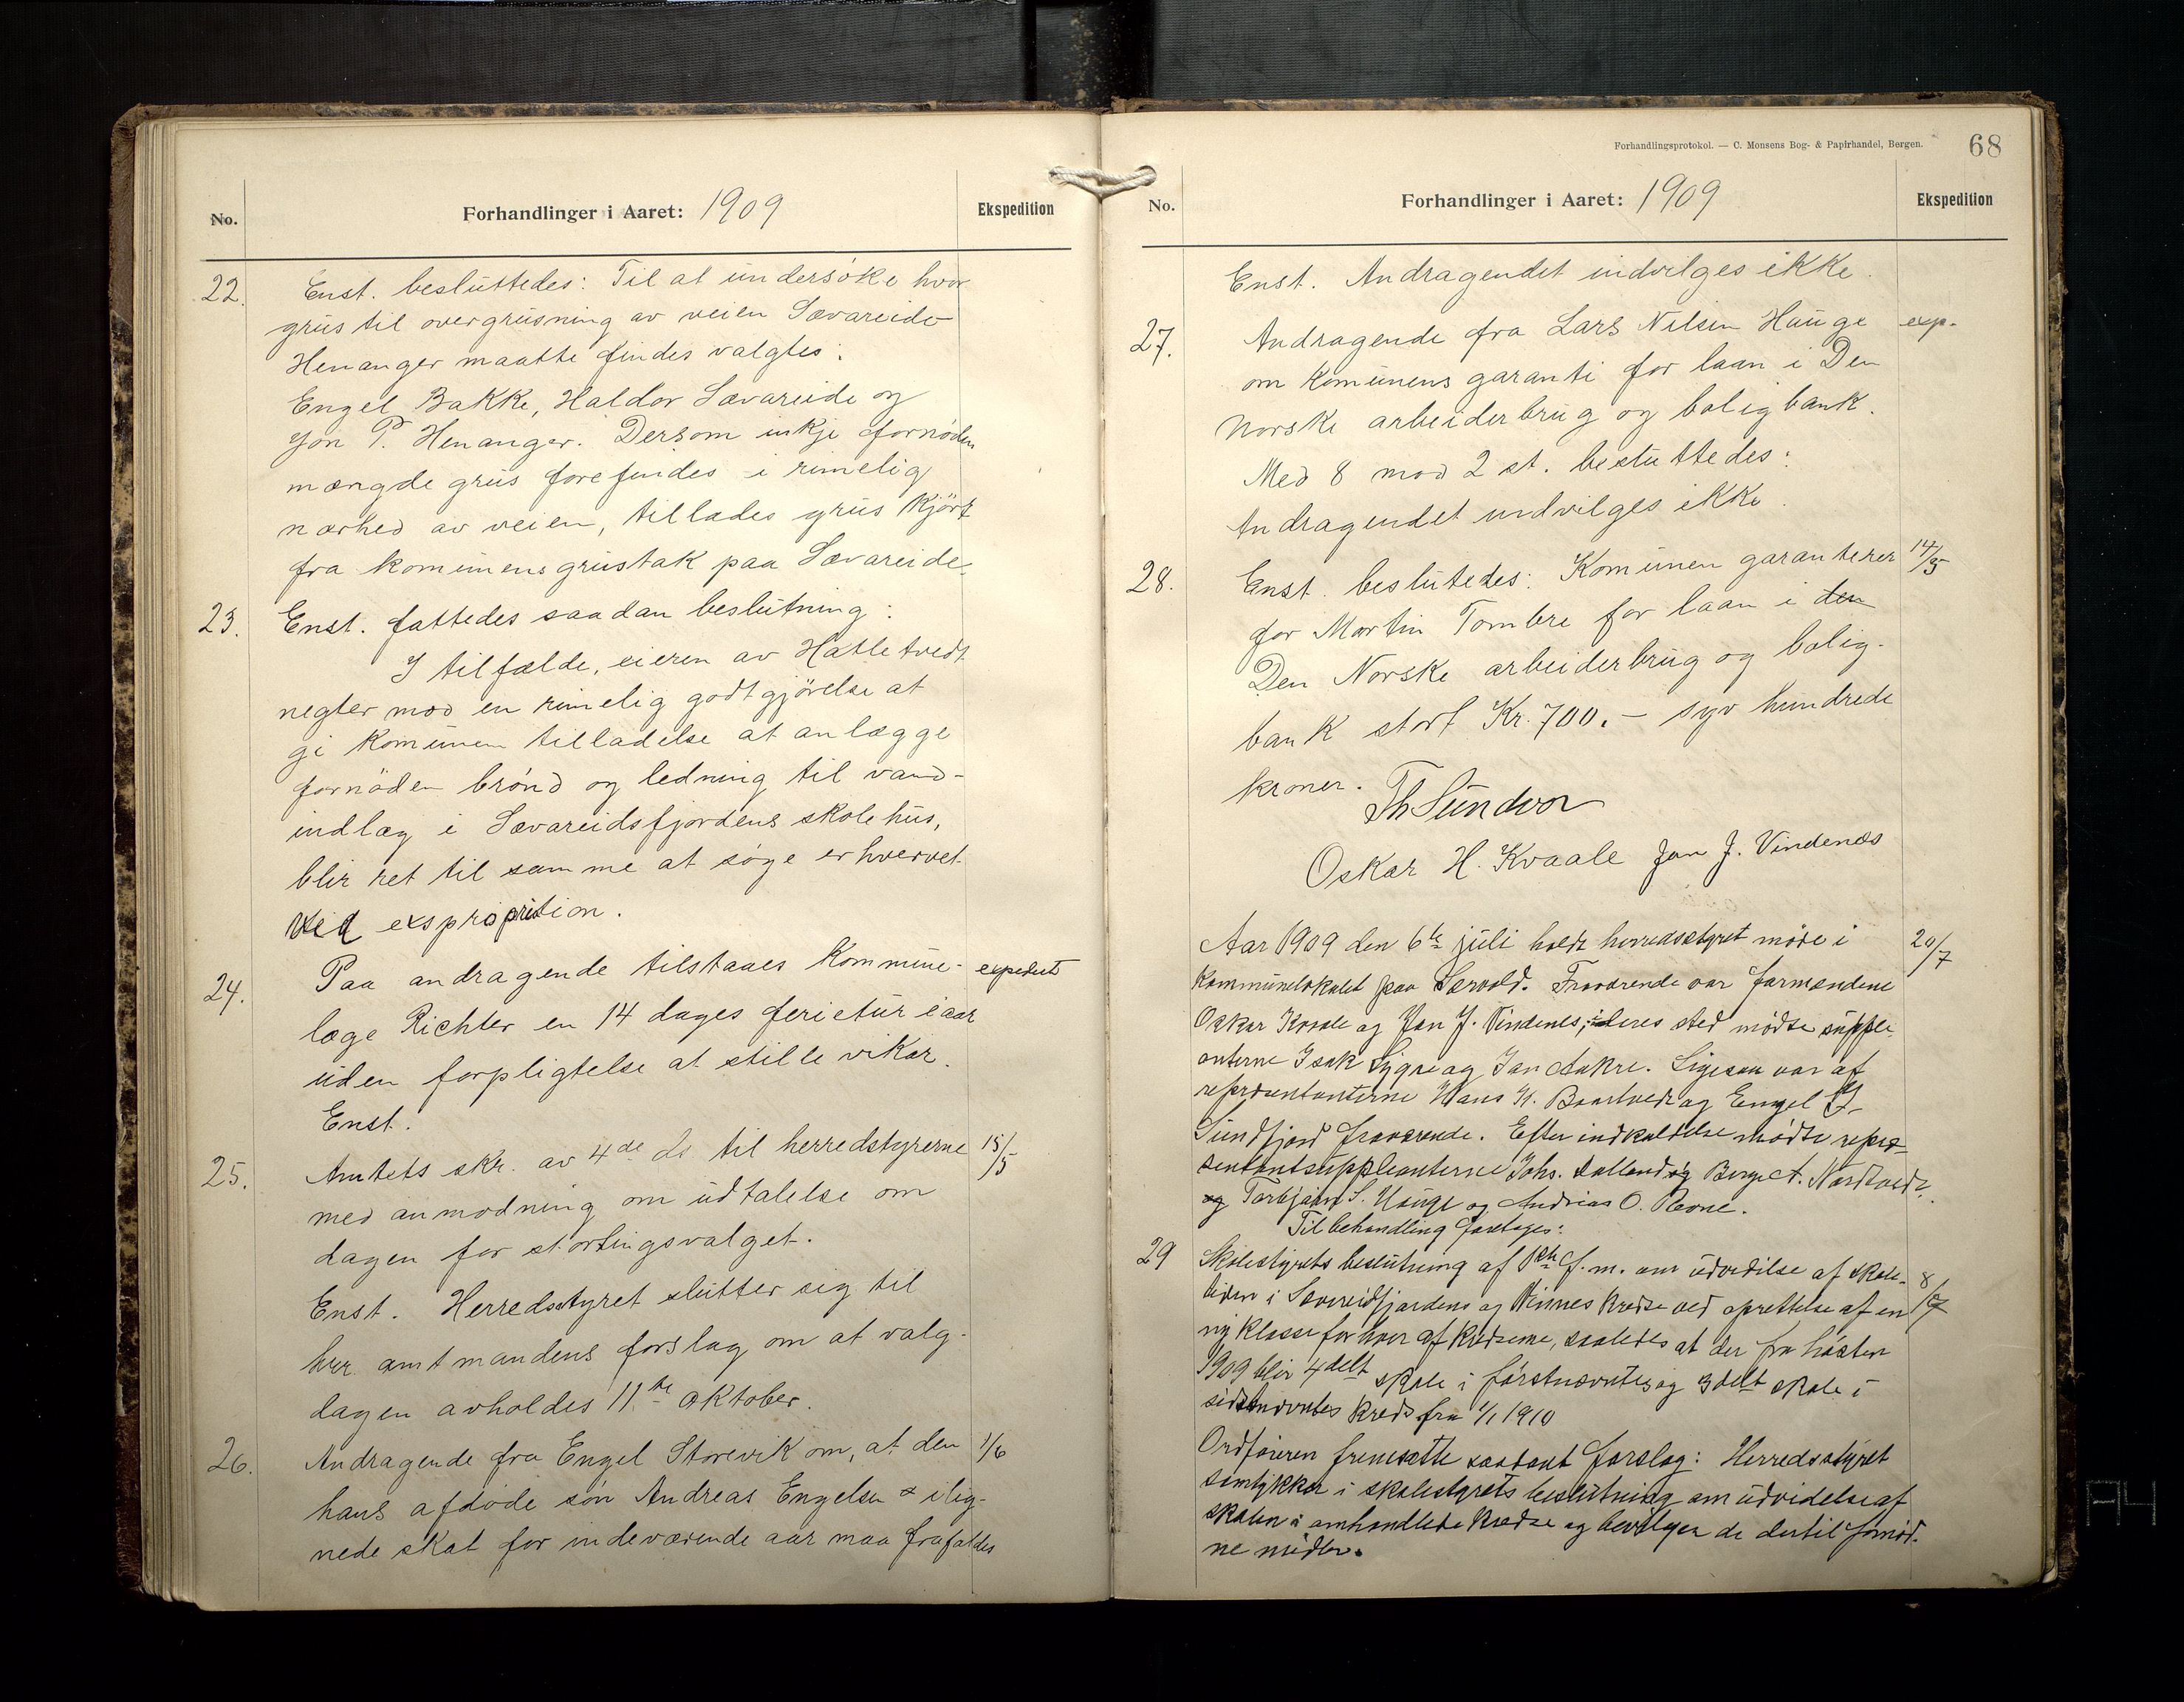 No.
Forhandlinger i Aaret: 1909
Ekspedition
22. Enst. besluttedes: Til at undersöke hvor
grus til overgrusning av veien Sævareide
Henanger maatte findes valgtes:
Engel Bakke, Haldor Sævareide og
Jon P. Henanger. Dersom inkje fornöden
mængde grus forefindes i rimelig
nærhed av veien, tillades grus kjört
fra komunens grustak paa Sævareide.
23. Enst. fattedes saadan beslutning:
I tilfælde, eieren av Hatletvedt
negter mod en rimelig godtgjörelse at
gi komunen tilladelse at anlægge
fornöden brönd og ledning til vand-
indlæg i Sævareidsfjordens skolehus,
blir ret til samme at söge erhvervet
ved expropriation.
24. Paa andragende tilstaaes kommune- expedert
læge Richter en 14 dages ferietur i aar
uden forpligtelse at stille vikar.
Enst.
25. Amtets skr. av 4de ds til herredstyrerne 15/5
med anmodning om udtalelse om
dagen for stortingsvalget.
Enst. Herredsstyret slutter sig til
hrr. amtmandens forslag om at valg-
dagen avholdes 11te oktober.
26. Andragende fra Engel Storevik om, at den 1/6
hans afdøde søn Andreas Engelsen ilig-
nede skat for indeværende aar maa frafaldes
Forhandlingsprotokol. — C. Monsens Bog- & Papirhandel, Bergen.
68
No.
Forhandlinger i Aaret: 1909
Ekspedition
Enst. Andragendet indvilges ikke.
27. Andragende fra Lars Nilsen Hauge exp.
om komunens garanti for laan i Den
norske arbeiderbrug og boligbank.
Med 8 mod 2 st. besluttedes:
Andragendet indvilges ikke.
28. Enst. beslutedes: Komunen garanterer 14/5
for Martin Tombre for laan i den
Den Norske arbeiderbrug og bolig-
bank stort Kr. 700.- syv hundrede
kroner.
Th Sundvor
Oskar H. Kvaale Jon J. Vindenæs
Aar 1909 den 6te juli holdt herredsstyret möde i 20/7
kommunelokalet paa Sævold. Fraværende var formændene
Oskar Kvaale og Jon J. Vindenes, i deres sted mødte supple-
anterne Isak Lygre og Jan Aakre. Ligesaa var af
repræsentanterne Hans H. Baartvedt og Engel J.
Sundfjord fraværende. Efter indkaldelse mødte repræ-
sentantsuppleanterne Johs. Dalland og Berge A. Nordtvedt
og Torbjørn S. Hauge og Andrias O. Revne.
Til behandling foretages:
29 Skolestyrets beslutning af f.m. om udvidelse af skole- 8/7
tiden i Sævareidfjordens og Vinnes kredse ved oprettelse af en
ny klasse for hver af kredsene, saaledes at der fra høsten
1909 blir 4delt skole i førstnævntes og 3delt skole i
sidstnævntes kreds fra 1/1 1910
Ordføreren fremsatte saadant forslag: Herredsstyret
samtykker i skolestyrets beslutning om udvidelse af
skolen i omhandlede kredse og bevilger de dertil fornød-
ne midler.